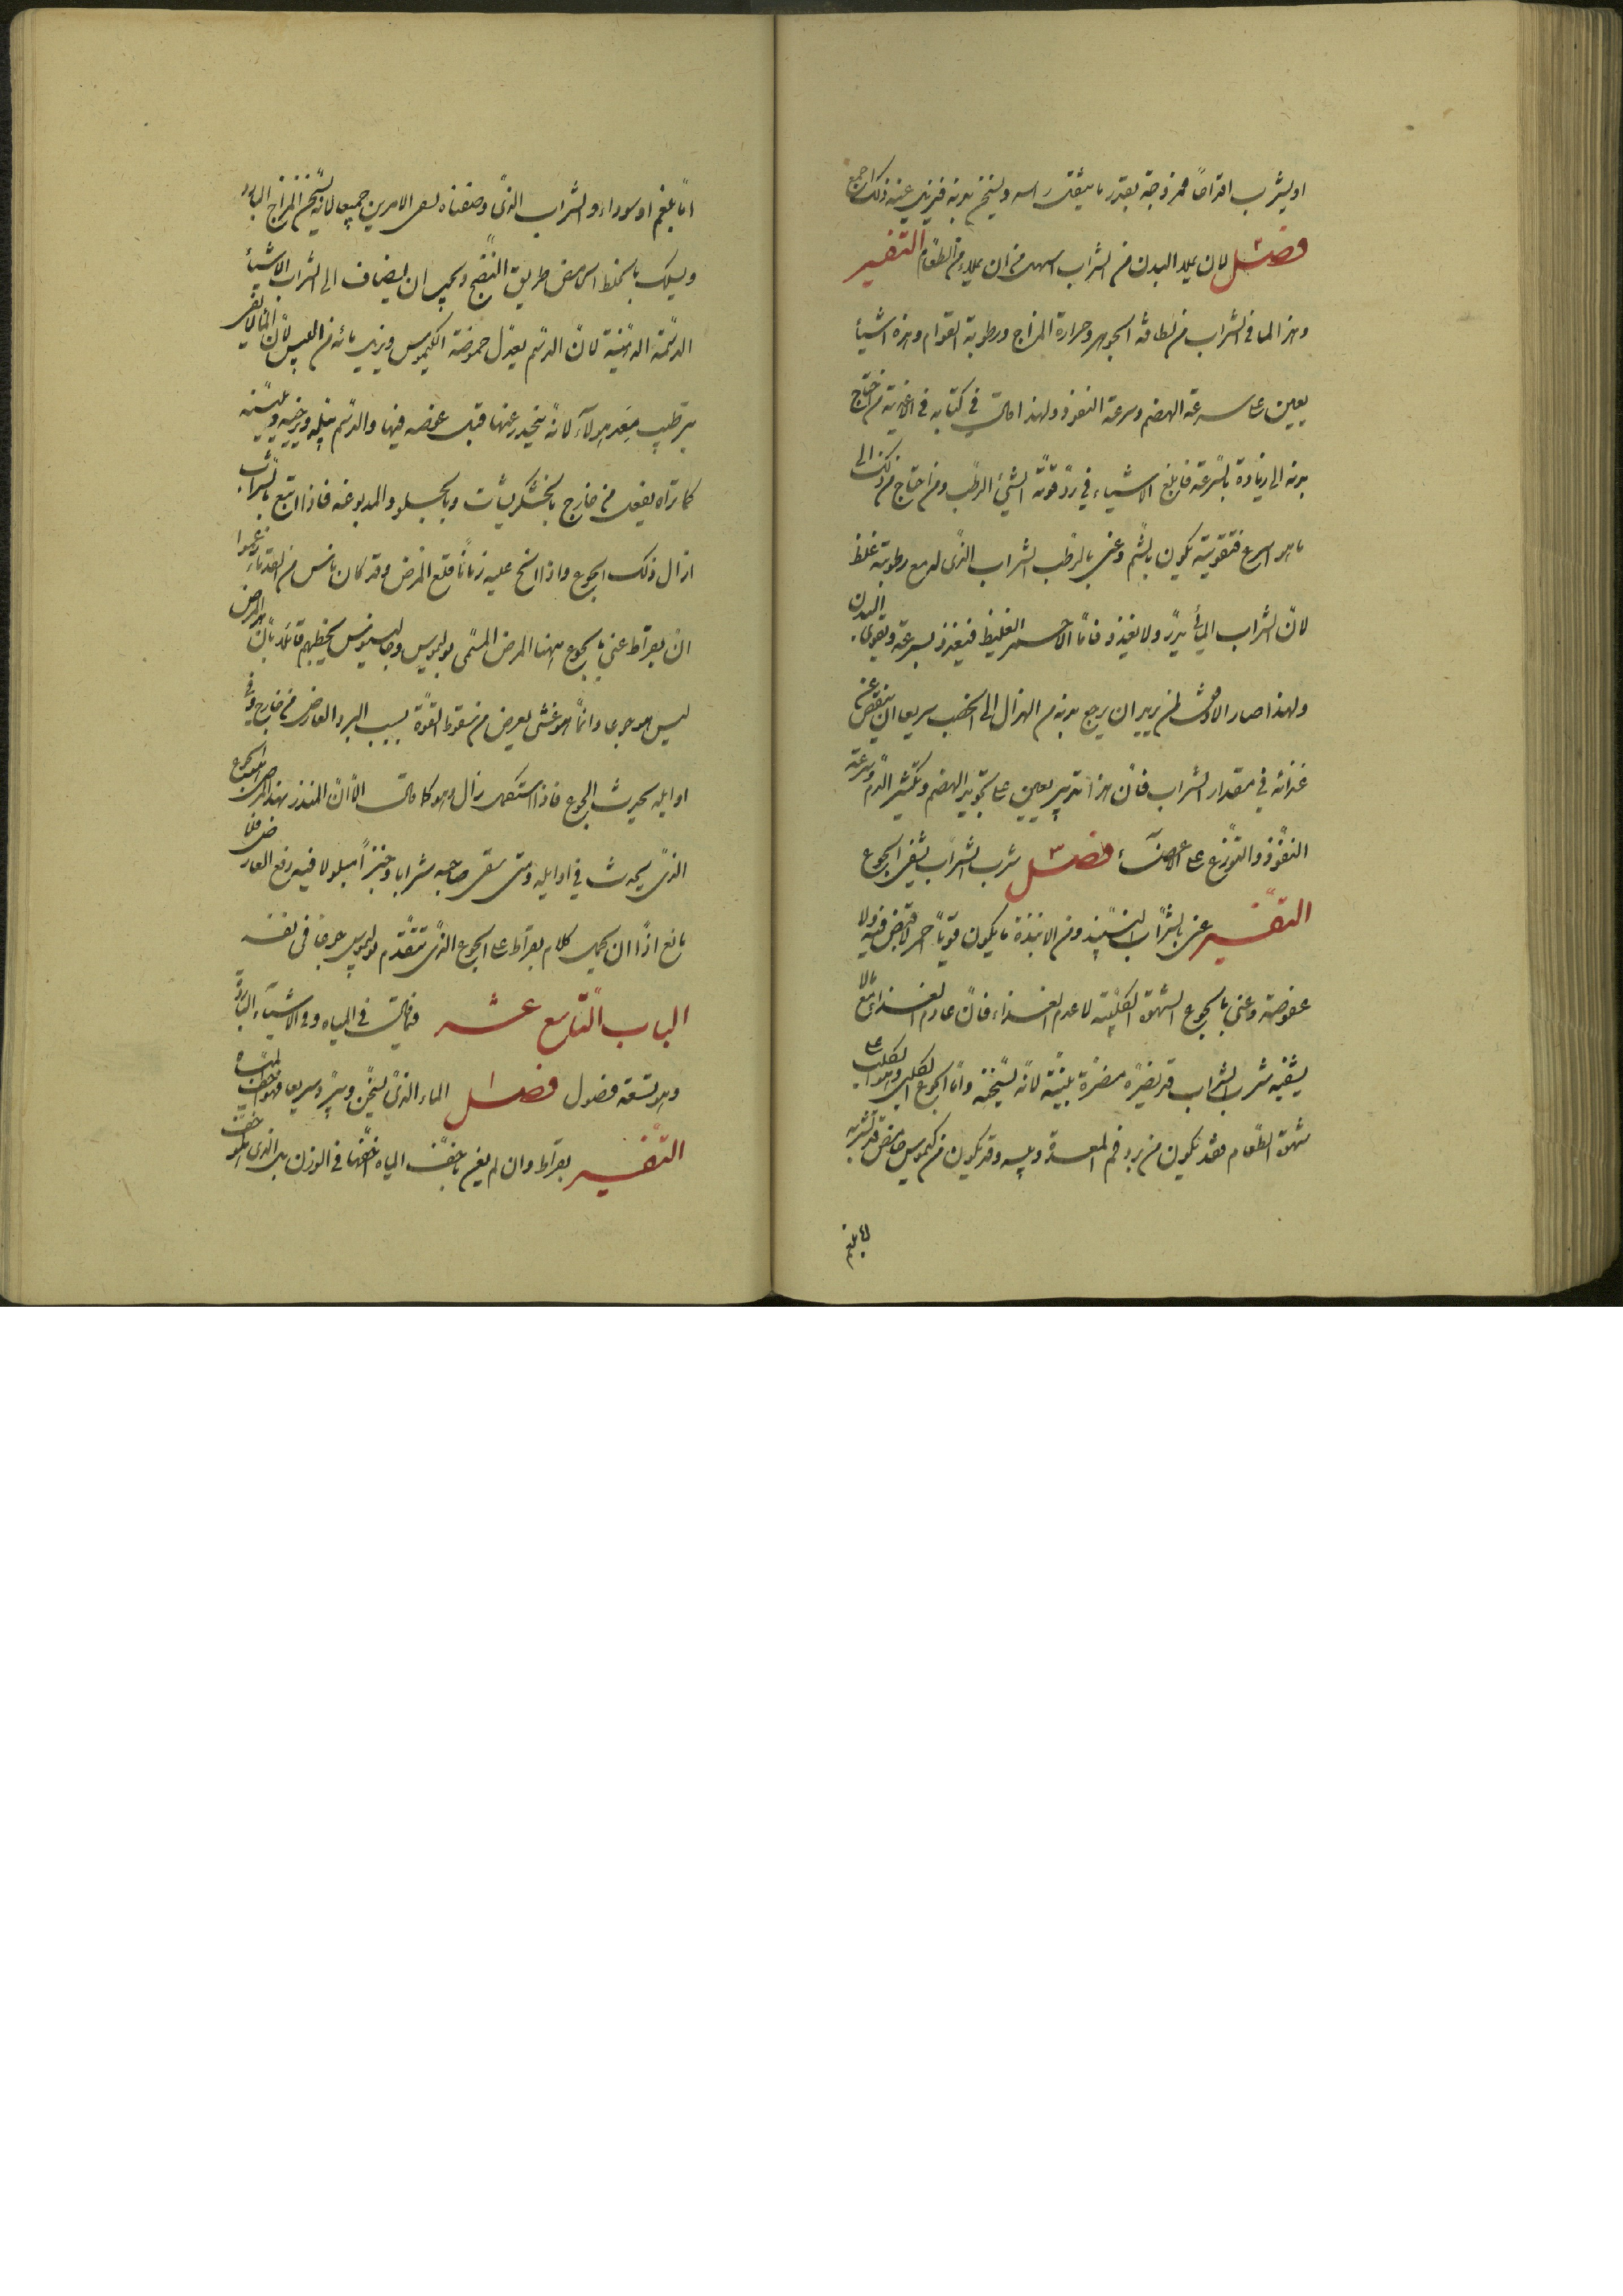 او يشرب اقداحاً ممزوجة بقدر ما يثقل راسه ويسخن بدنه فيزيل عنه ذلك اجمع
فصل ٢ لان يملا البدن من الشراب اسهل من ان يملا من الطعام التفسير
وهذا لما في الشراب من لطافة الجوهر وحرارة المزاج ورطوبة القوام وهذه اشيأ
يعين على سرعة الهضم وسرعة النفوذ ولهذا قال في كتابه في الاغذية من احتاج
بدنه الى زيادة بالسرعة فابلغ الاشياء في رد قوته الشئ الرطب ومن احتاج من ذلك الى
ما هو اسرع فتقويته يكون بالشم وعنى بالرطب الشراب الذى له مع رطوبته غلظ
لان الشراب المائى يدر ولا يغذو فاما الاحمر الغليظ فيغذو بسرعة ويقوى البدن
ولهذا صار الاوفق لمن يريد ان يرجع بدنه من الهزال الى الخصب سريعا ان ينقص من
غذائه في مقدار الشراب فان هذا تدبير يعين على تجويد الهضم وتكثير الدم وسرعة
النفوذ والتوزع على الاعضاء فصل ٣ شرب الشراب يشفى الجوع
التفسير عنى بالشراب النبيذ ومن الانبذة ما يكون قويا احمر لا قبض فيه ولا
عفوصة وعنى بالجوع الشهوة الكلبية لا عدم الغذاء فان عادم الغذاء مع انه لا
يشفيه شرب الشراب قد يضره مضرة بينة لانه يسخنه واما الجوع الكلبى وهو الكلب على
شهوة الطعام فقد تكون من برد فم المعدة ويبسه وقد يكون من كيموس حامض قد تشربه
اما بلغم
اما بلغم او سوداء والشراب الذى وصفناه يشفى الامرين جميعا لانه يسخن المزاج البارد
ويسلك بالخلط الحامض طريق النضج ويجب ان يضاف الى الشراب الاشيأ
الدسمة الدهنية لان الدسم يعدل حموضة الكيموس ويزيل ما به من اليبس لان الماء لا يفى
بترطيب معد هولآء لانه ينحدر عنها قبل غوصه فيها والدسم يبله ويرخيه ويلينه
كما تراه يفعل من خارج بالخشكريشات وبالجلود المدبوغه فاذا اتبع بالشراب
ازال ذلك الجوع واذا الح عليه زمانا قلع المرض وقد كان ناس من القدماء زعموا
ان بقراط عنى بالجوع ههنا المرض المسمى بوليموس وجالينوس يخطيهم قائلا بان هذا المرض
ليس هو جوعا وانما هو غشى يعرض من سقوط القوة بسبب البرد العارض من خارج وفى
اوايله يحدث الجوع فاذا استكمل زال وهو كما قال الا ان المنذر بهذا المرض هو الجوع
الذى يحدث في اوايله ومتى سقى صاحبه شرابا وخبزا مبلولا فيه دفع العارض فلا
مانع اذا ان يحمل كلام بقراط على الجوع الذى يتقدم بوليموس
الباب التاسع عشر فيما قال في المياه وفى الاشيآء الباردة
وهو تسعة فصول فصل ١ الماء الذى يسخن ويبرد سريعا فهو اخف المياه
التفسير بقراط وان لم يعن باخف المياه اخفها في الوزن بل الذى هو اخف